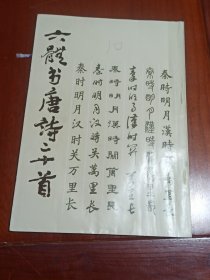 秦時明月漢時
秦時明月漢時
秦時明月漢時關萬里長
秦时明月汉时关万里长
秦时明月汉时关万里长
六體书唐詩二十首